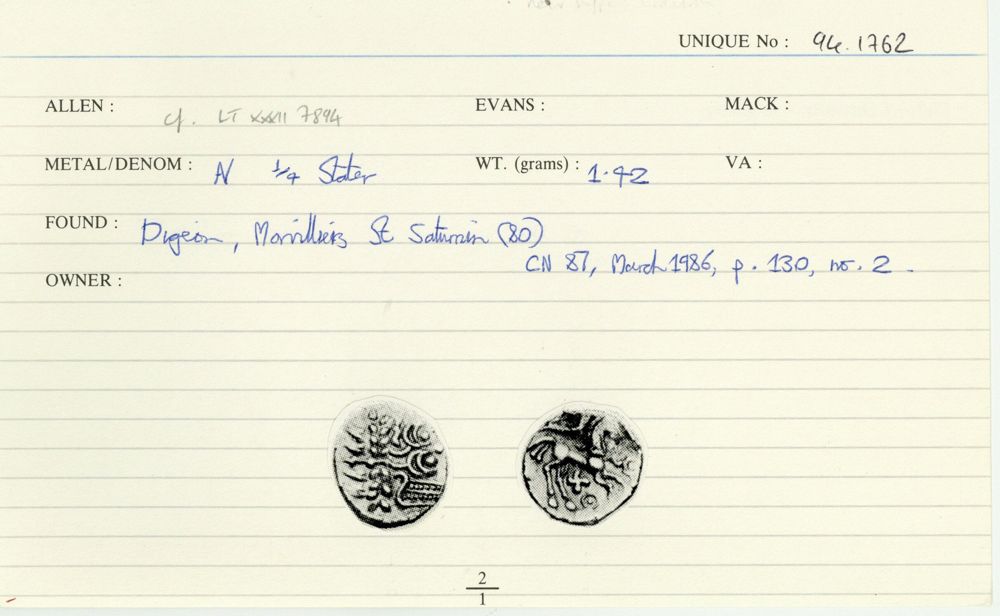 UNIQUE No : 94.1762
ALLEN : cf. LT XXXII 7894 EVANS : MACK :
METAL/DENOM : N 1/4 Stater WT. (grams) : 1.42 VA :
FOUND : Digeon, Morvilliers St Saturnin (80)
CN 87, March 1986, p. 130, no. 2.
OWNER :
2
1